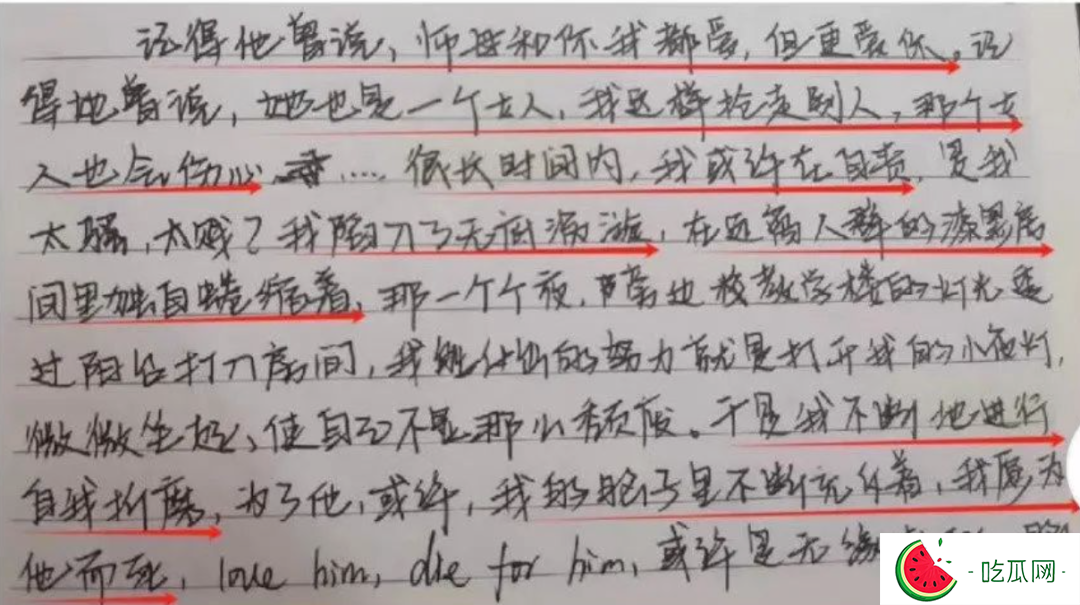 记得他曾说，师母和你我都爱，但更爱你。记
得她曾说，她也是一个女人，我这样抢走别人，那个女
人也会伤心 .... 很长时间内，我或许在自责，是我
太骚，太贱？我陷入了无底漩涡，在远离人群的漆黑房
间里独自蜷缩着，那一个个夜，隔着校教学楼的灯光透
过阳台打入房间，我能付出的努力就是打开我的小夜灯，
微微坐起，使自己不显那么颓废。于是我不断地进行
自我折磨，为了他，或许，我的脑子里不断充斥着，我愿为
他而死，love him, die for him, 或许是无
吃瓜网